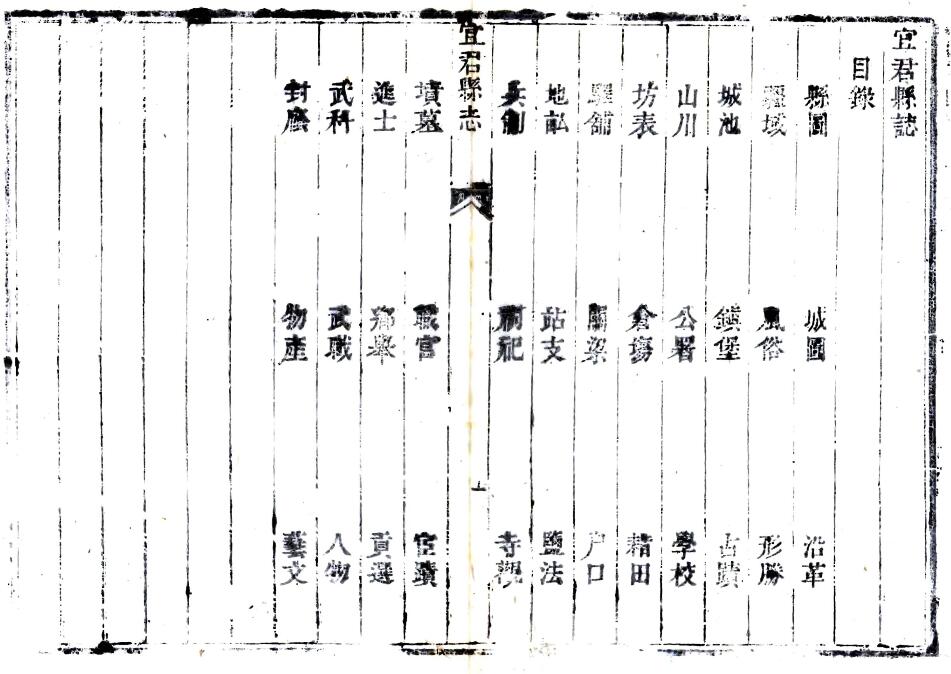 宜君縣誌
目錄
縣圖 城圖 沿革
疆域 風俗 形勝
城池 鎭堡 古蹟
山川 公署 學校
坊表 倉塲 耤田
驛舖 關梁 戸口
地畝 站支 鹽法
兵制 祠祀 寺觀
宜君縣志
墳墓 職官 宦蹟
進士 鄉舉 貢選
武科 武職 人物
封廕 物產 藝文